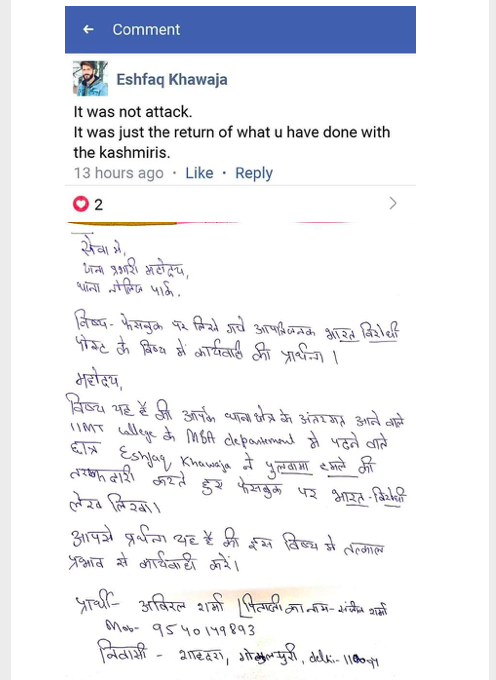 Comment
Eshfaq Khawaja
It was not attack.
It was just the return of what u have done with
the kashmiris.
13 hours ago · Like · Reply
2
सेवा में,
थाना प्रभारी महोदय,
थाना नॉलेज पार्क.
विषय- फेसबुक पर लिखे गये आपत्तिजनक भारत विरोधी
पोस्ट के विषय में कार्यवाही की प्रार्थना।
महोदय,
विषय यह है की आपके थाना क्षेत्र के अंतरगत आने वाले
IIMT college के MBA department में पढ़ने वाले
छात्र Eshfaq Khawaja ने पुलवामा हमले की
तरफदारी करते हुए फेसबुक पर भारत-विरोधी
लेख लिखा।
आपसे प्रार्थना यह है की इस विषय में तत्काल
प्रभाव से कार्यवाही करें।
प्रार्थी- अविरल शर्मा | पिताजी का नाम- संजीव शर्मा
Mob- 9540149893
निवासी - शाहदरा, गोकुलपुरी, delhi-